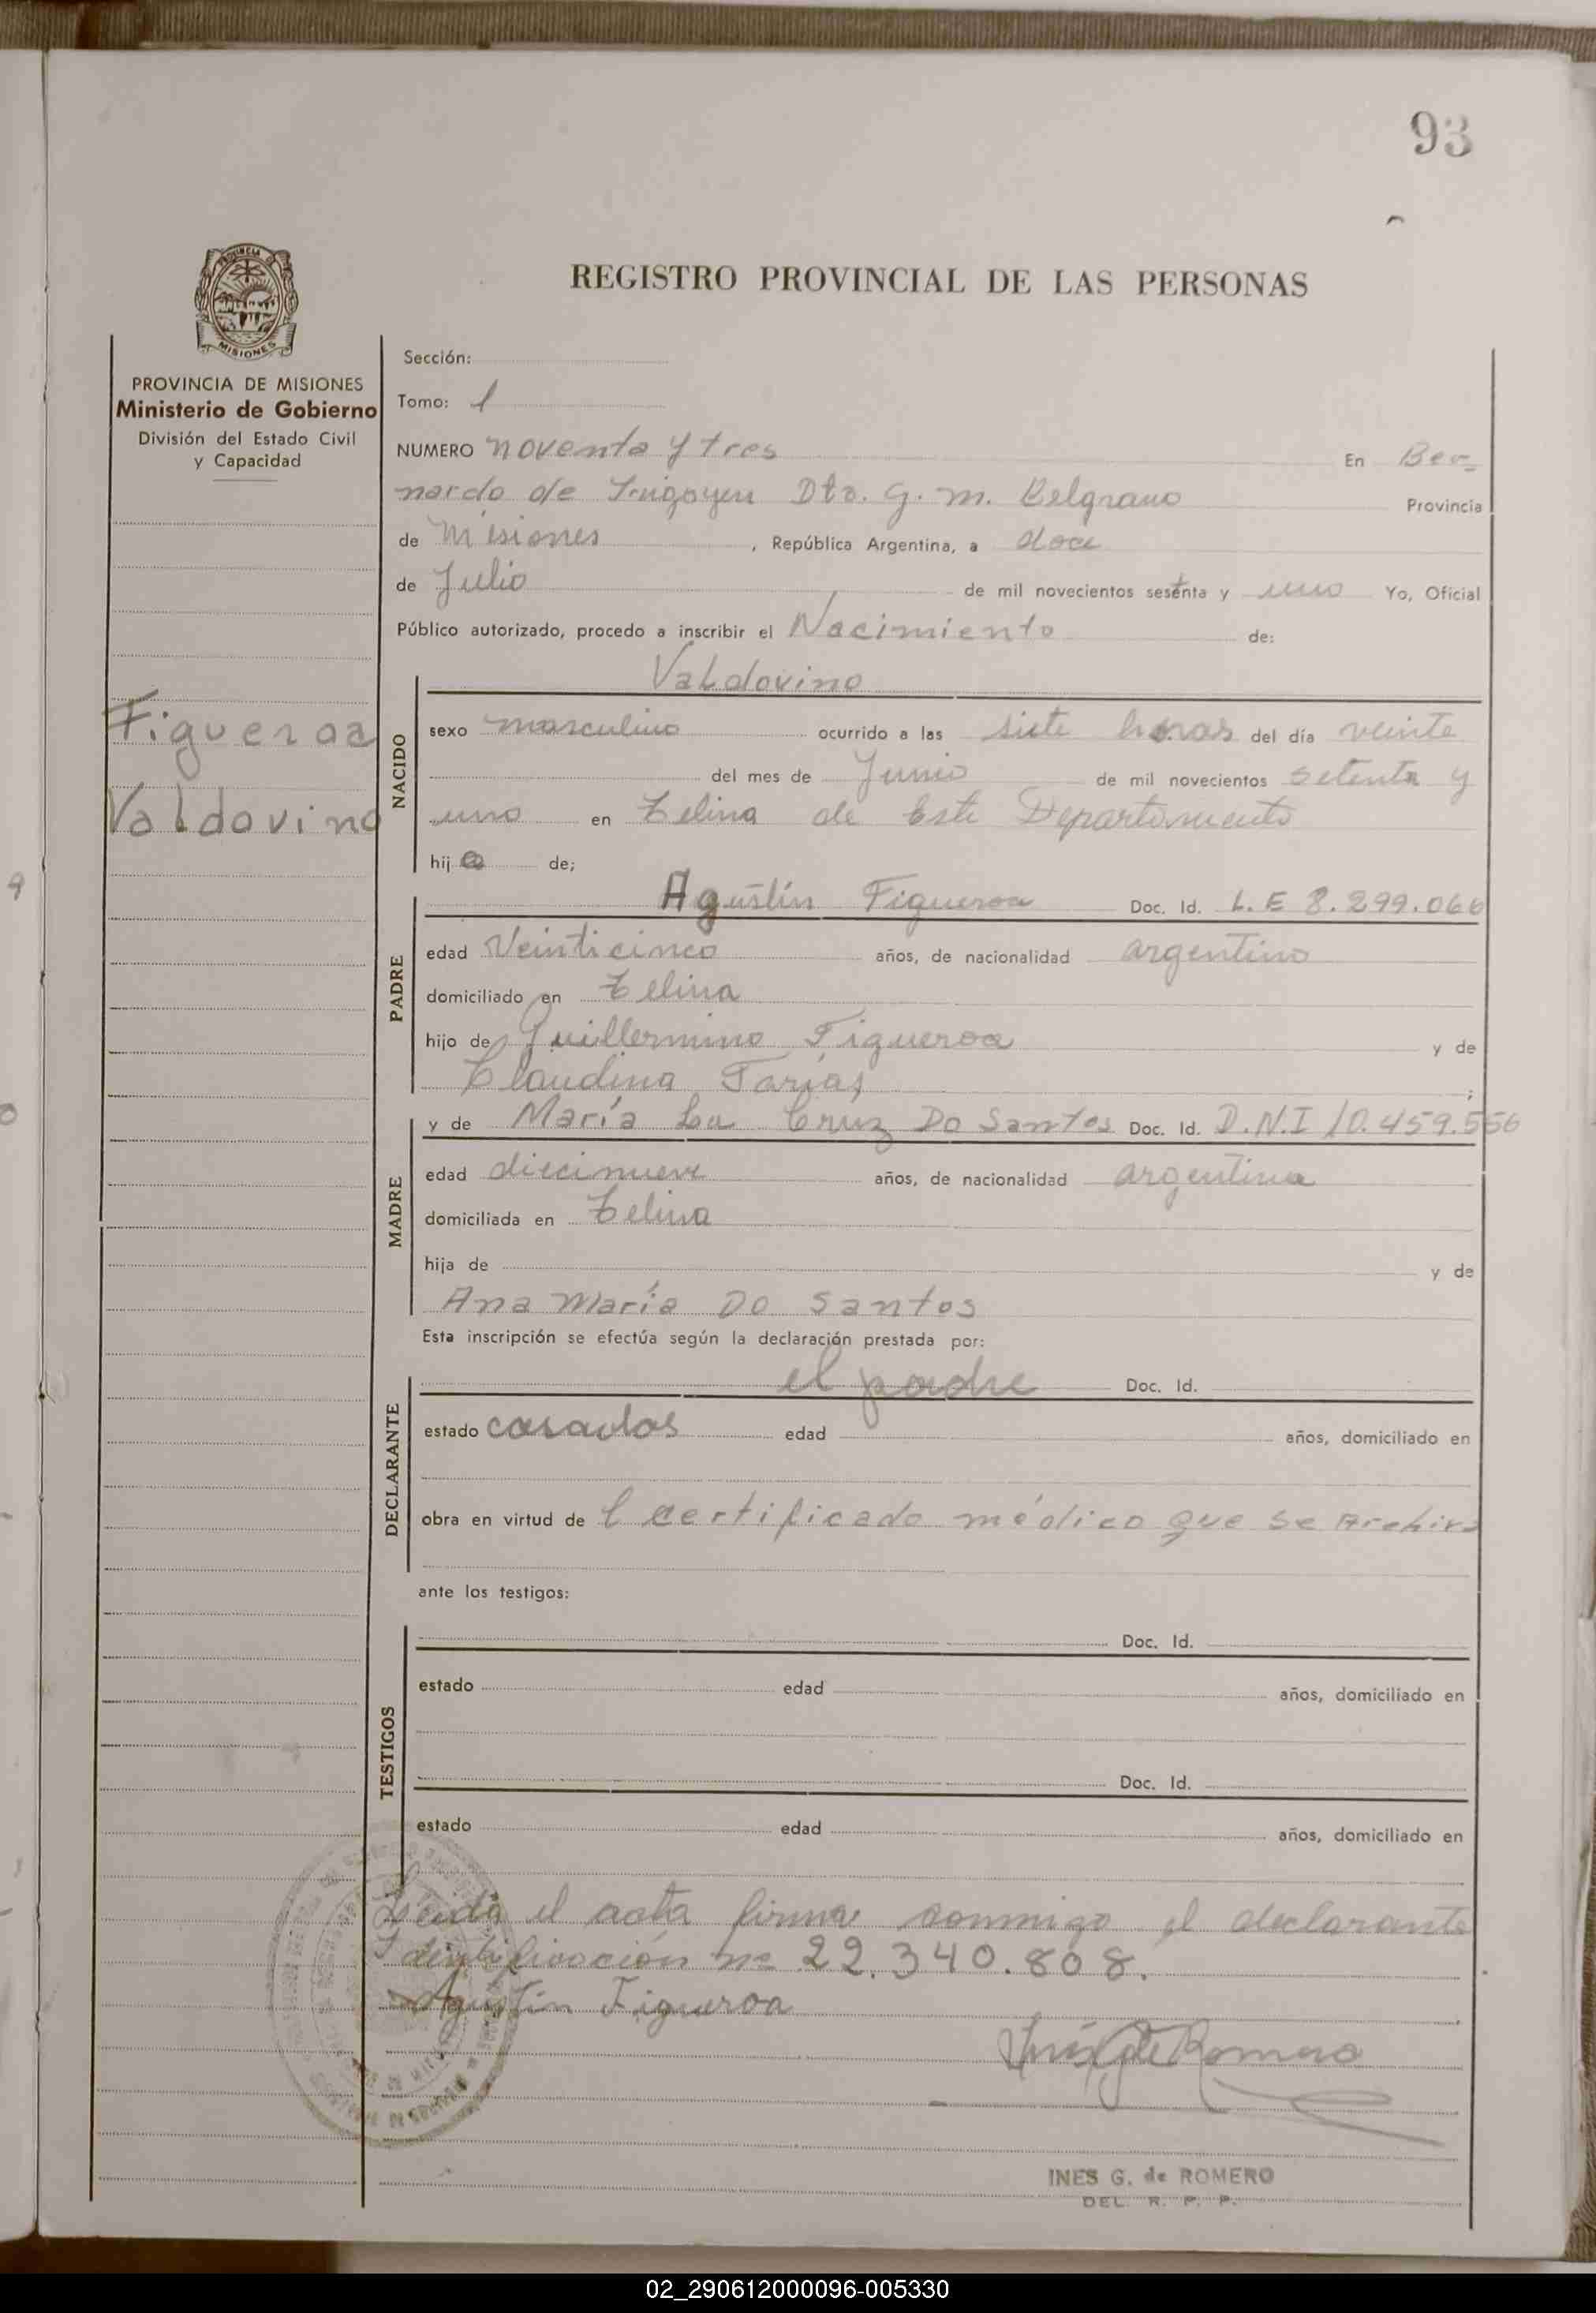 93
REGISTRO PROVINCIAL DE LAS PERSONAS
PROVINCIA DE MISIONES
Ministerio de Gobierno
División del Estado Civil
y Capacidad
Figueroa
Valdovino
Sección:
Tomo: 1
NUMERO noventa y tres En Ber=
nardo de Irigoyen Dto. G. M. Belgrano Provincia
de Misiones, República Argentina, a doce
de Julio de mil novecientos sesenta y uno Yo, Oficial
Público autorizado, procedo a inscribir el Nacimiento de:
NACIDO
Valdovino
sexo masculino ocurrido a las siete horas del día veinte
del mes de Junio de mil novecientos setenta y
uno en Zelina de Este Departamento
hij o de;
PADRE
Agustín Figueroa Doc. Id. L.E 8.299.066
edad Veinticinco años, de nacionalidad argentino
domiciliado en Zelina
hijo de Guillermino Figueroa y de
Claudina Farías ;
MADRE
y de María La Cruz Do Santos Doc. Id. D.N.I 10.459.556
edad diecinueve años, de nacionalidad argentina
domiciliada en Zelina
hija de y de
Ana María Do Santos
Esta inscripción se efectúa según la declaración prestada por:
DECLARANTE
el padre Doc. Id.
estado casados edad años, domiciliado en
obra en virtud de l certificado médico que se Archiva
ante los testigos:
TESTIGOS
Doc. Id.
estado edad años, domiciliado en
Doc. Id.
estado edad años, domiciliado en
Leída el acta firma conmigo el declarante
Identificación nº 22.340.808.
Agustín Figueroa
Inés G de Romero
INES G. de ROMERO
DEL. R. P. P.
02_290612000096-005330